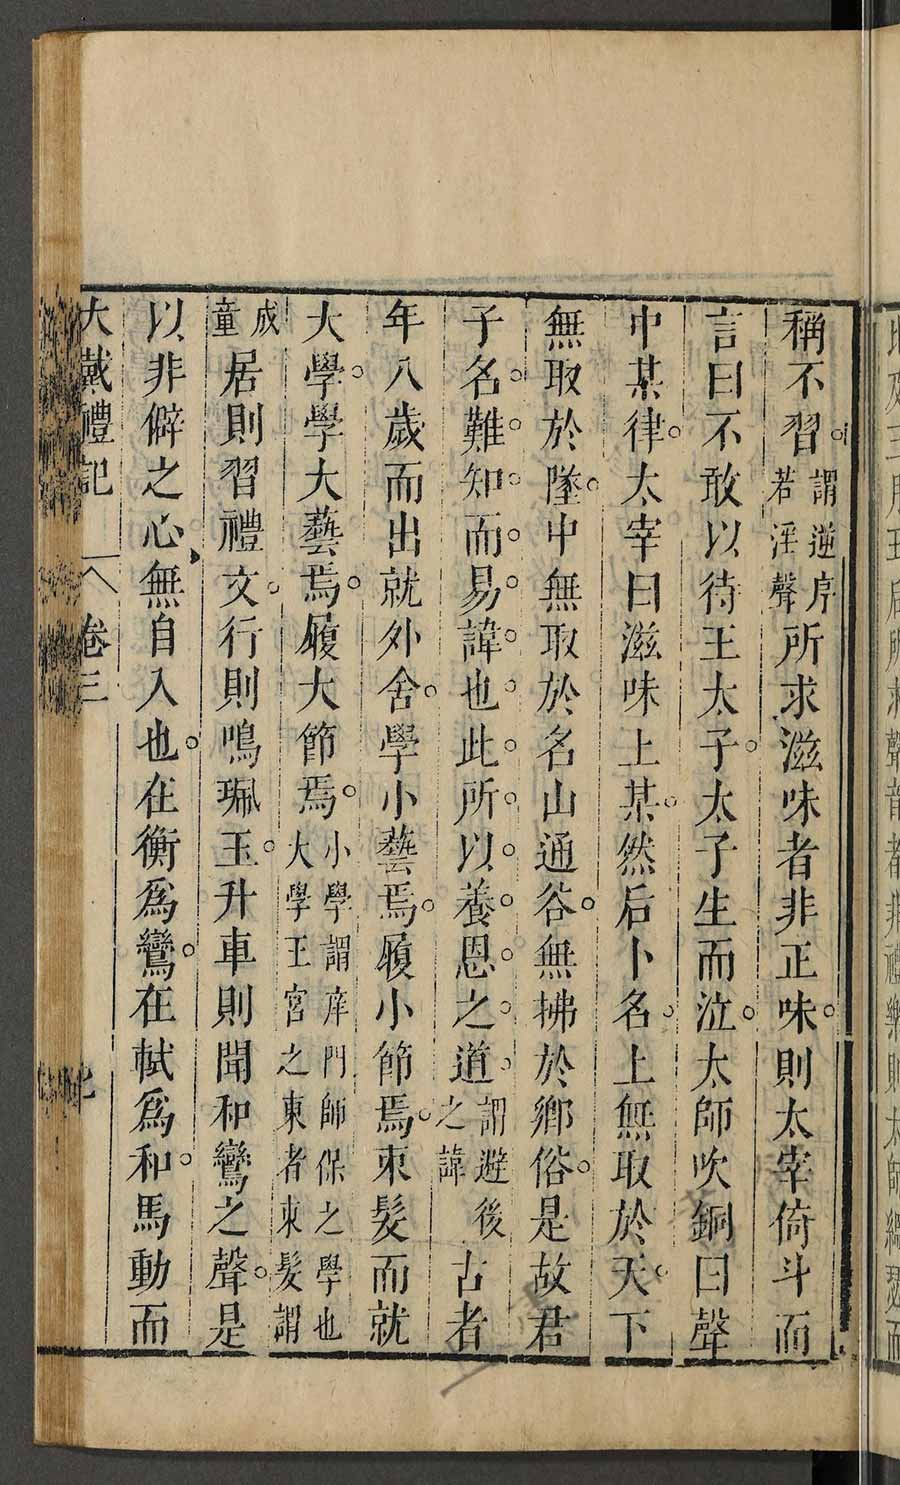 稱不習。謂逆序若淫聲所求滋味者非正味。則太宰倚斗而
言曰不敢以待王太子。太子生而泣。太師吹銅曰聲
中某律。太宰曰滋味上某。然后卜名。上無取於天。下
無取於墜。中無取於名山通谷。無拂於鄉俗。是故君
子名。難。知。而。易。諱。也。此。所。以。養。恩。之。道。謂避後之諱古者
年八歲而出就外舍。學小藝焉。履小節焉。束髮而就
大學。學大藝焉。履大節焉。小學謂庠門師保之學也大學王宮之東者束髮謂
成童居則習禮文。行則鳴珮玉。升車則聞和鸞之聲。是
以非僻之心無自入也。在衡爲鸞。在軾爲和。馬動而
大戴禮記 卷三